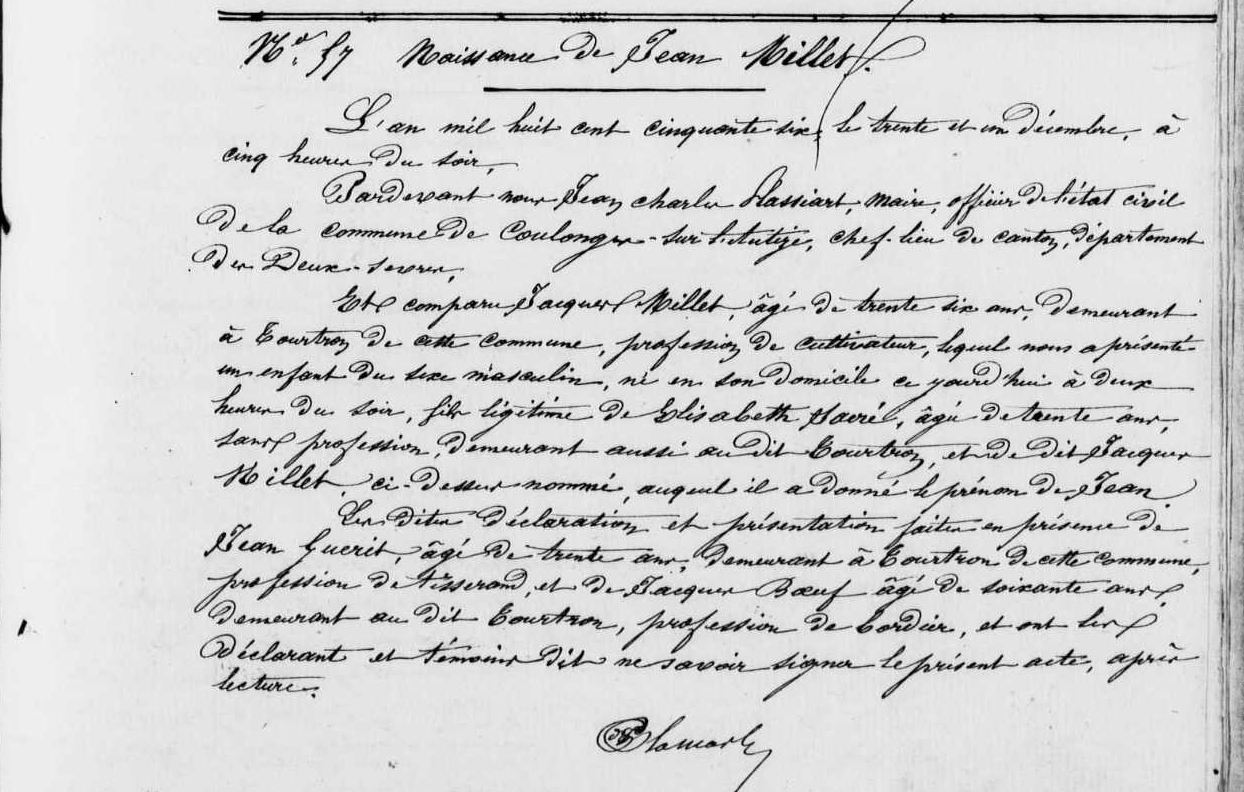 No. 57 Naissance de Jean Millet.
L'an mil huit cent cinquante six, le trente et un décembre, à
cinq heures du soir,
Pardevant nous Jean charles Plassiart, maire, officier de l'état civil
de la commune de Coulonges-sur-l'Autize, chef-lieu de canton, département
des Deux-Sevres,
Est comparu Jacques Millet, âgé de trente six ans, demeurant
à Tourtron de cette commune, profession de cultivateur, lequel nous a présenté
un enfant du sexe masculin, né en son domicile ce jourd'hui à deux
heures du soir, fils légitime de Elisabeth Sacré, âgée de trente ans,
sans profession, demeurant aussi au dit Tourtron, et de dit Jacques
Millet, ci-dessus nommé, auquel il a donné le prénom de Jean
Les dites déclaration et présentation faites en présence de
Jean Guerit, âgé de trente ans, demeurant à Tourtron de cette commune,
profession de tisserand, et de Jacques Bœuf âgé de soixante ans,
demeurant au dit Tourtron, profession de bordier, et ont les
déclarant et témoins dit ne savoir signer le présent acte, après
lecture.